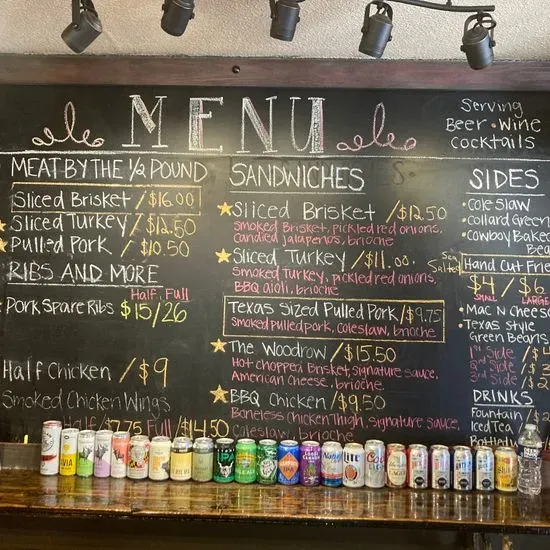 MENU
Serving
Beer • Wine
cocktails
MEAT BY THE 1/2 POUND
Sliced Brisket /$16.00
Sliced Turkey /$12.50
Pulled Pork /$10.50
RIBS AND MORE
Half, Full
Pork Spare Ribs $15/26
Half Chicken /$9
Smoked Chicken Wings
Half/$7.75 Full/$14.50
SANDWICHES
Sliced Brisket /$12.50
Smoked Brisket, pickled red onions,
candied jalapeños, brioche
Sliced Turkey /$11.00
Smoked Turkey, pickled red onions,
BBQ aioli, brioche
Texas Sized Pulled Pork /$9.75
Smoked pulled pork, coleslaw, brioche
The Woodrow /$15.50
Hot chopped Brisket, signature sauce,
American cheese, brioche
BBQ Chicken /$9.50
Boneless Chicken Thigh, signature sauce,
coleslaw, brioche
SIDES
• Coleslaw
• Collard Green
• Cowboy Baked
Bea
Sea
Salted
Hand Cut Frie
$4 / $6
SMALL LARGE
• Mac N Cheese
• Texas Style
Green Beans
1st Side /$4
2nd Side /$3
3rd Side /$2
DRINKS
Fountain /$2
Iced Tea /
Bottled
Lite